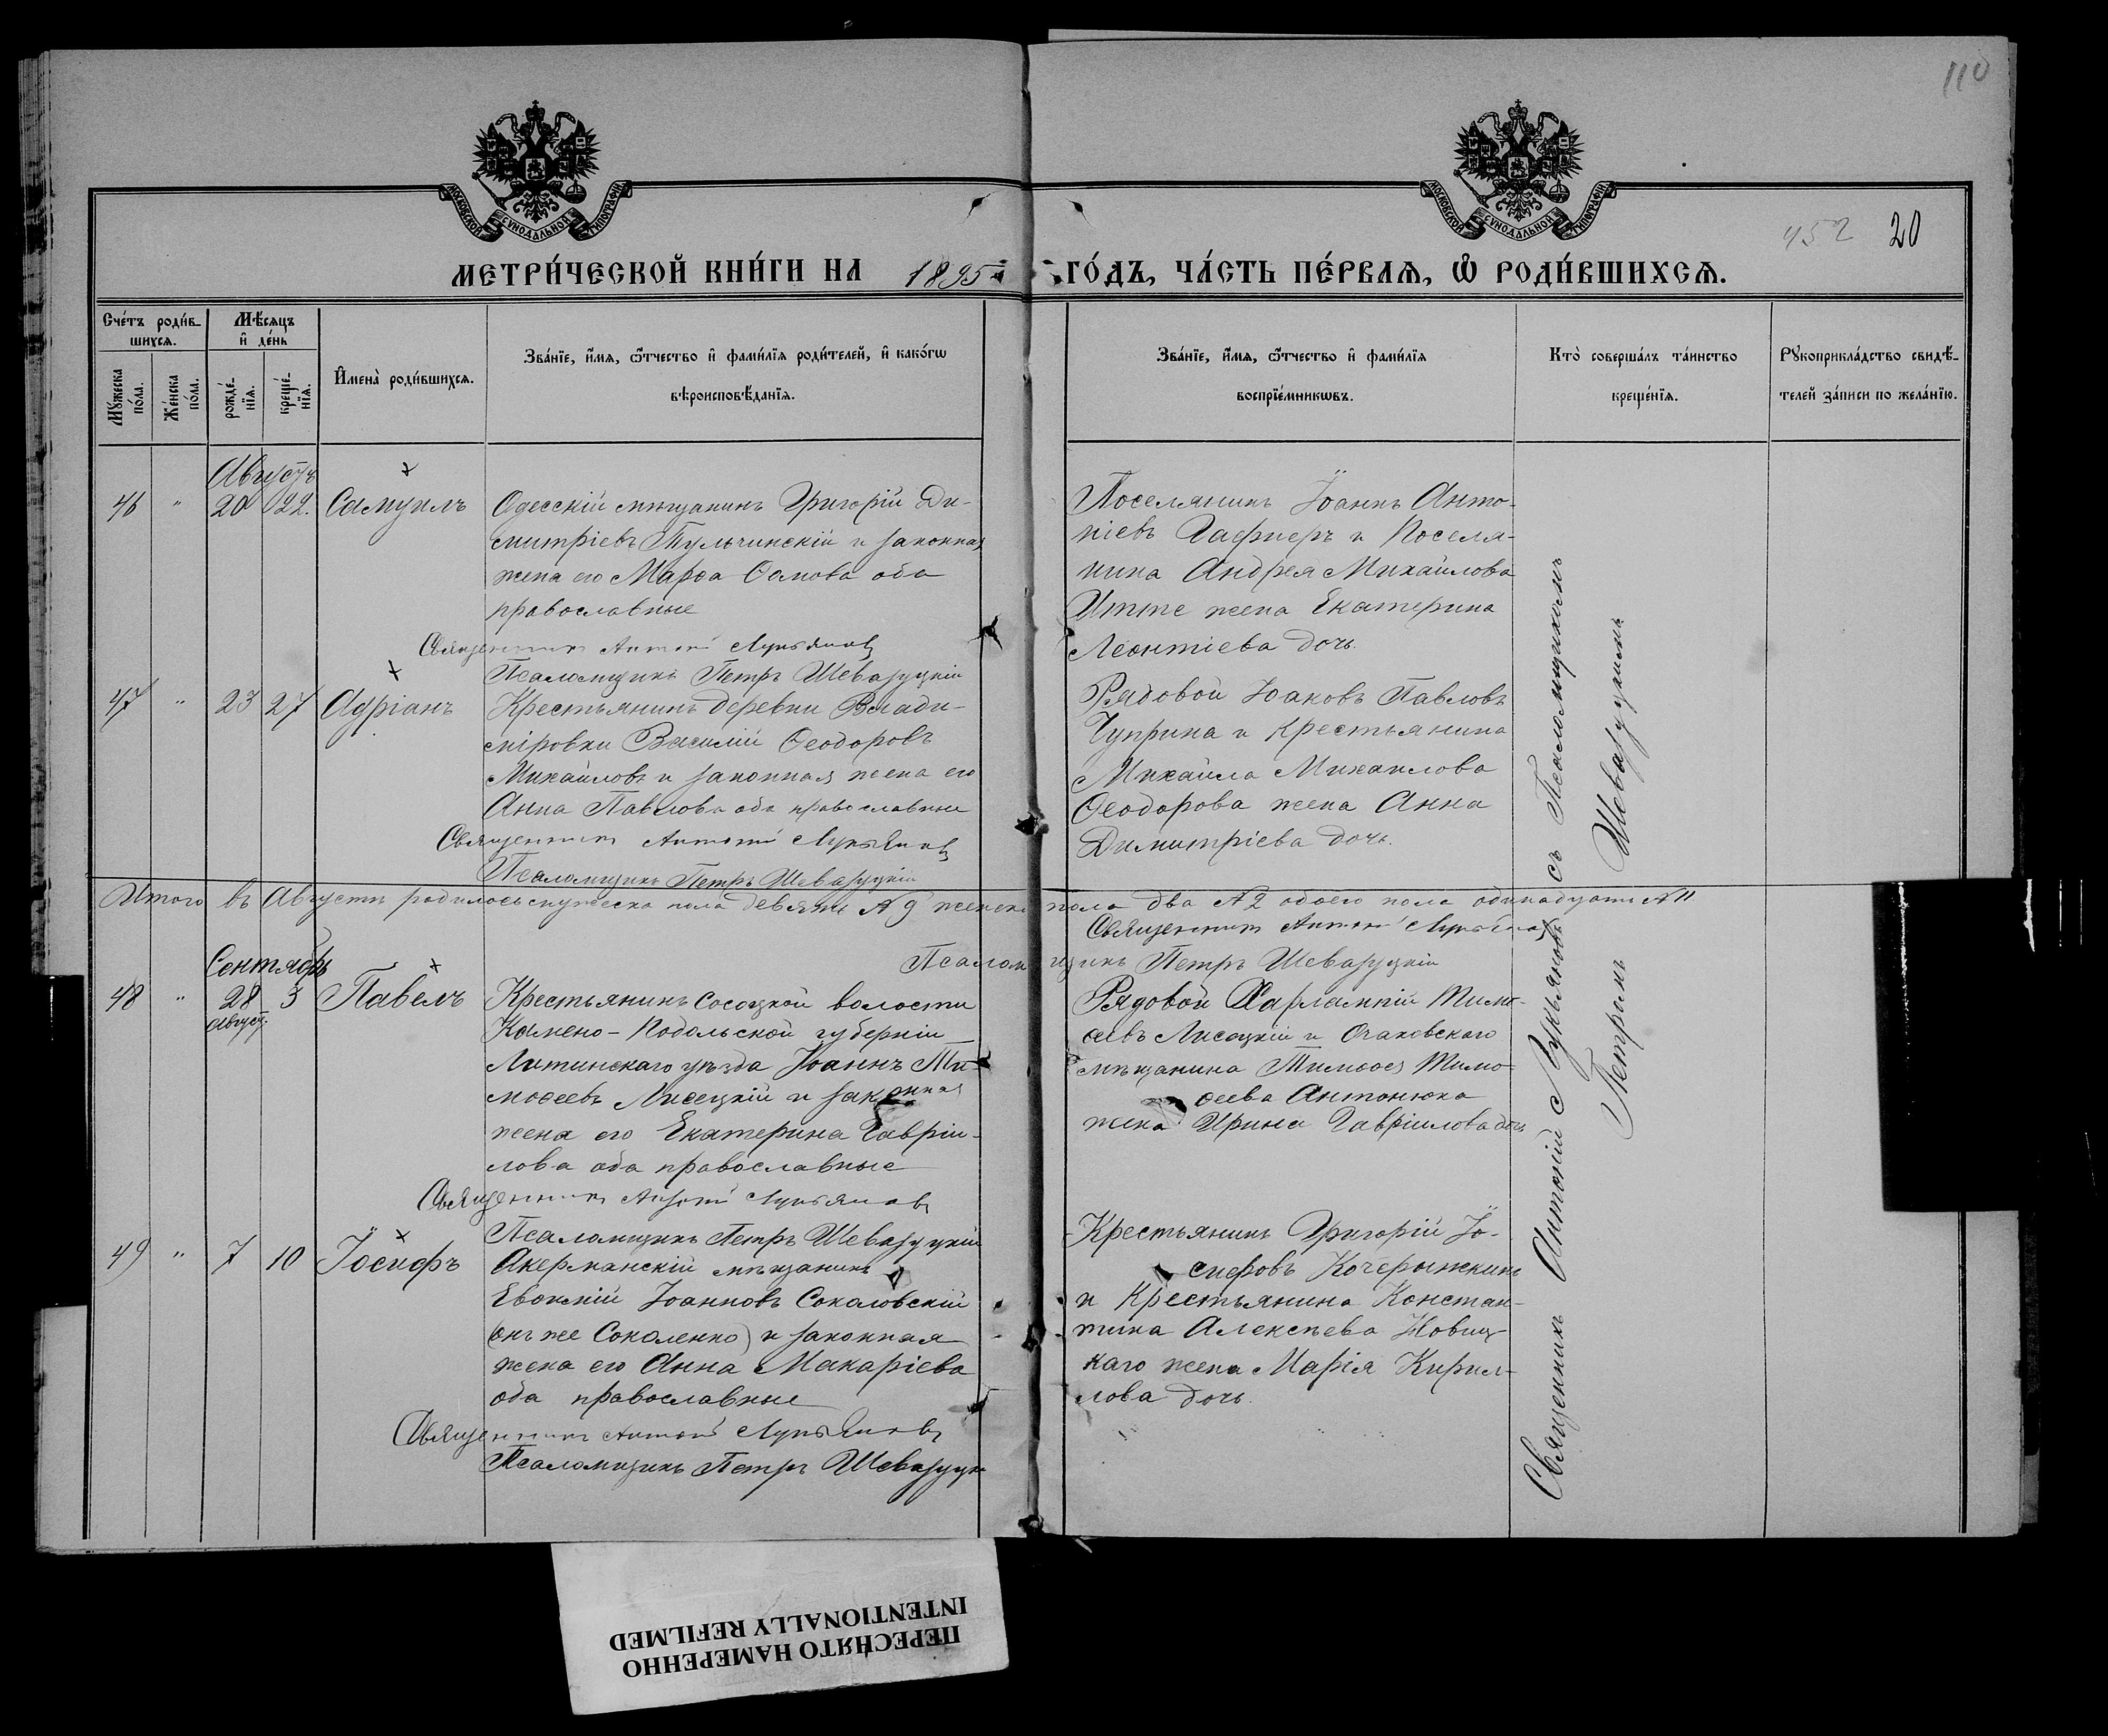 110
МОСКОВСКОЙ СУНОДАЛЬНОЙ ТИПОГРАФІИ
МОСКОВСКОЙ СУНОДАЛЬНОЙ ТИПОГРАФІИ
452 20
МЕТРИ́ЧЕСКОЙ КНИ́ГИ НА 1895 ГО́ДЪ, ЧА́СТЬ ПЕ́РВАѦ, Ѿ РОДИ́ВШИХСѦ.
Сче́тъ роди́в-
шихсѧ.
Мꙋ́жеска по́ла.
Же́нска по́ла.
Мѣ́сѧцъ
и҆ де́нь
рожде́-
нїѧ.
креще́-
нїѧ.
И҆мена̀ роди́вшихсѧ.
Зва́нїе, и҆́мѧ, ѻ҆́тчество и҆ фами́лїѧ роди́телей, и҆ како́гѡ
вѣроисповѣ́данїѧ.
Зва́нїе, и҆́мѧ, ѻ҆́тчество и҆ фами́лїѧ
воспрїе́мникѡвъ.
Кто̀ соверша́лъ та́инство
креще́нїѧ.
Рꙋкоприкла́дство свидѣ́-
телей за́писи по жела́нїю.
Августъ
46 " 20 22. Самуилъ
Одесскій мѣщанинъ Григорій Ди-
митріевъ Тульчинскій и законная
жена его Марѳа Ѳомова оба
православные
Священникъ Антоній Лукьяновъ
Псаломщикъ Петръ Шевазуцкій
Поселянинъ Іоаннъ Анто-
ніевъ Гафнеръ и Поселя-
нина Андрея Михайлова
Итте жена Екатерина
Леонтіева дочь.
47 " 23 27 Адріанъ
Крестьянинъ деревни Влади-
міровки Василій Ѳеодоровъ
Михайловъ и законная жена его
Анна Павлова оба православные
Священникъ Антоній Лукьяновъ
Псаломщикъ Петръ Шевазуцкій
Рядовой Іоаковъ Павловъ
Чуприна и Крестьянина
Михаила Михаилова
Ѳеодорова жена Анна
Димитріева дочь.
Итого въ Августѣ родилось мужеска пола девять № 9 женска пола два № 2 обоего пола одинадцать № 11
Священникъ Антоній Лукьяновъ
Псаломщикъ Петръ Шевазуцкій
Сентябрь
48 " 28 3 Павелъ
Август.
Крестьянинъ Сосоцкой волости
Камено-Подольской губерніи
Литинскаго уѣзда Іоаннъ Ти-
моѳеевъ Лисецкій и законная
жена его Екатерина Гавріи-
лова оба православные
Священникъ Антоній Лукьяновъ
Псаломщикъ Петръ Шевазуцкій
Рядовой Харлампій Тимо-
ѳеевъ Лисецкій и Очаковскаго
мѣщанина Тимоѳея Тимо-
ѳеева Антонюка
жена Ирина Гавріилова дочь
49 " 7 10 Іосифъ
Акерманскій мѣщанинъ
Евѳимій Іоанновъ Соколовскій
(онъ же Соколенко) и законная
жена его Анна Макаріева
оба православные
Священникъ Антоній Лукьяновъ
Псаломщикъ Петръ Шевазуцкій
Крестьянинъ Григорій Іо-
сифовъ Кочерыжкинъ
и Крестьянина Констан-
тина Алексѣева Новиц-
каго жена Марія Кирил-
лова дочь.
Священникъ Антоній Лукьяновъ съ Псаломщикомъ
Петромъ Шевазуцкимъ
ПЕРЕСНЯТО НАМЕРЕННО
INTENTIONALLY REFILMED